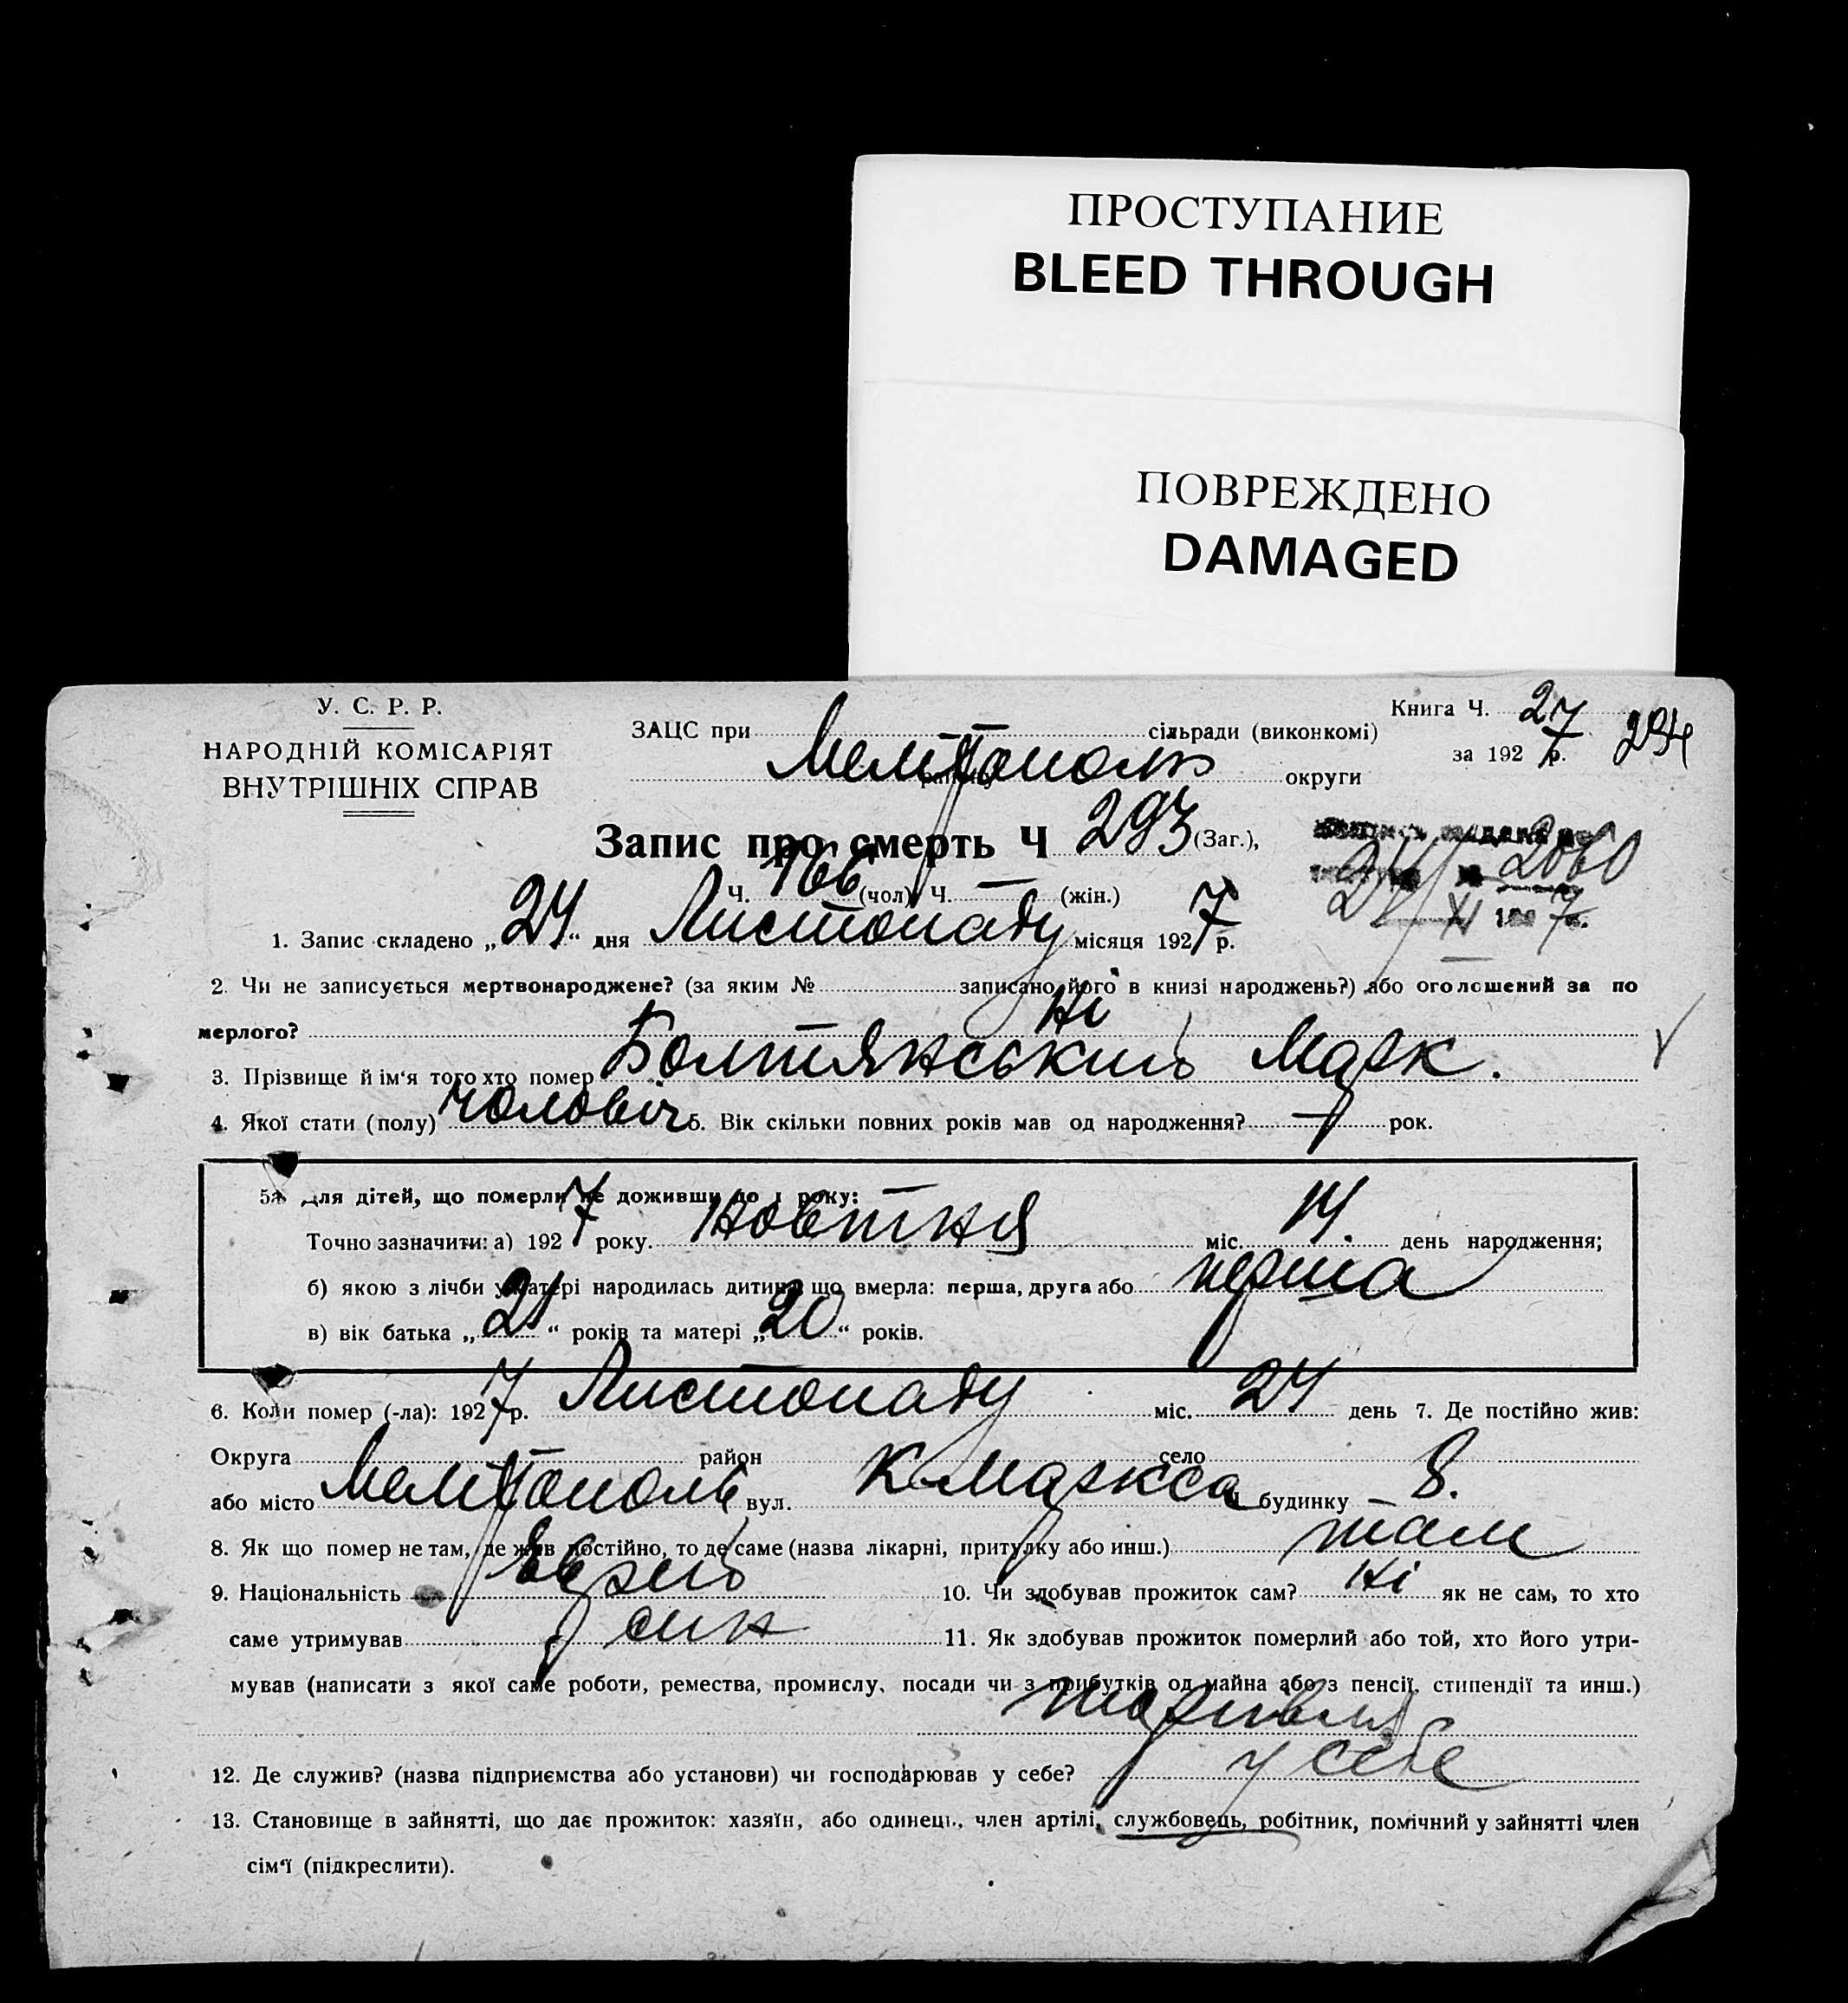 ПРОСТУПАНИЕ
BLEED THROUGH
ПОВРЕЖДЕНО
DAMAGED
У. С. Р. Р.
НАРОДНІЙ КОМІСАРІЯТ
ВНУТРІШНІХ СПРАВ
Книга Ч. 27 294
за 1927 р.
ЗАЦС при сільради (виконкомі)
Мелітополь округи
Запис про смерть Ч 293 (Заг.),
Ч. 166 (чол) Ч. — (жін.)
2060
24/XI 1927 р.
1. Запис складено „24“ дня Листопаду місяця 1927 р.
2. Чи не записується мертвонароджене? (за яким № записано його в книзі народжень?) або оголошений за по
мерлого? Ні
3. Прізвище й ім‘я того хто помер Болтянський Марк.
4. Якої стати (полу) чоловіч 5. Вік скільки повних років мав од народження? — рок.
5а. Для дітей, що померли не доживши до 1 року:
Точно зазначити: а) 1927 року. Жовтня міс. 14. день народження;
б) якою з лічби у матері народилась дитина що вмерла: перша, друга або перша
в) вік батька „21“ років та матері „20“ років.
6. Коли померла (-ла): 1927 р. Листопаду міс. 24 день 7. Де постійно жив:
Округа район село
або місто Мелітополь вул. К-Маркса будинку 8.
8. Як що помер не там, де жив постійно, то де саме (назва лікарні, притулку або инш.) там
9. Національність Єврей 10. Чи здобував прожиток сам? Ні як не сам, то хто
саме утримував син 11. Як здобував прожиток померлий або той, хто його утри-
мував (написати з якої саме роботи, ремества, промислу, посади чи з прибутків од майна або з пенсії, стипендії та инш.)
торгівля
12. Де служив? (назва підприємства або установи) чи господарював у себе? у себе
13. Становище в зайнятті, що дає прожиток: хазяїн, або одинець, член артілі, службовець, робітник, помічний у зайнятті член
сім‘ї (підкреслити).